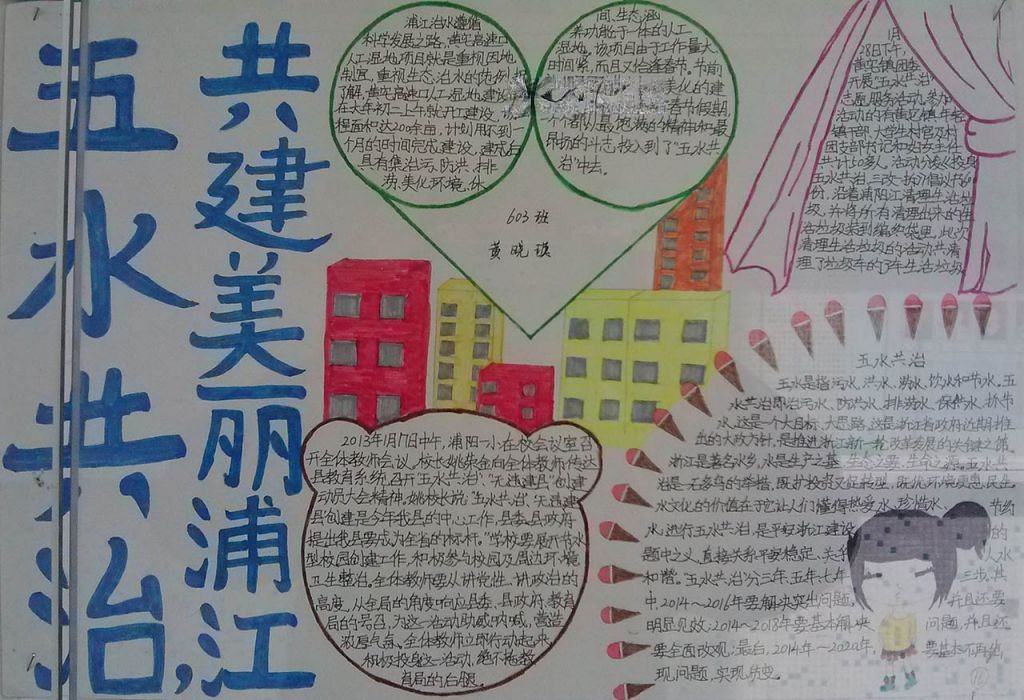 五水共治,
共建美丽浦江
浦江治水遵循
科学发展之路,黄宅高速口
人工湿地项目就是重视因地
制宜,重视生态治水的范例,据
了解,黄宅高速口人工湿地建设
在大年初二上午就开工建设,
程面积达200余亩,计划用不到一
个月的时间完成建设,建成后
具有集治污、防洪、排
涝、美化环境、休
间、生态涵
养功能于一体的人工
湿地,该项目由于工作量大
时间紧,而且又恰逢春节。节前
美化的建
春节假期,
个个都以最饱满的精神和最
昂扬的斗志,投入到了“五水共
治”中去。
603班
黄晓琪
1月
28日下午,
黄宅镇团委
开展“五水共治”
志愿服务活动,参加
活动的有黄宅镇年轻
镇干部、大学生村官及村
团支部书记和妇女主任
共计60多人。活动分发《投身
五水共治、三改一拆》倡议书60
份,沿着浦阳江清理生活垃
圾,并将所有清理出来的生
活垃圾装到编织袋里,此次
清理生活垃圾的活动共清
理了垃圾车的了车生活垃圾
2013年1月17日中午,浦阳一小在校会议室召
开全体教师会议。校长姚朱金向全体教师传达
县教育系统召开“五水共治”、“无违建县”创建
动员大会精神,姚校长说:“五水共治”、无违建
县创建是今年我县的中心工作,县委、县政府
提出我县要成为全省的标杆。”学校要展开节水
型校园创建工作,积极参与校园及周边环境
卫生整治。全体教师要从讲党性、讲政治的
高度,从全局的角度响应县委、县政府、教育
局的号召,为这一活动助威呐喊,营造
浓厚气氛。全体教师立即行动起来,
积极投身这一活动,绝不拖教
育局的后腿。
五水共治
五水是指污水、洪水、涝水、饮水和节水、五
水共治即治污水、防洪水、排涝水、保供水、抓节
水,这是一个大目标、大思路,这是浙江省政府近期推
出的大政方针,是推进浙江新一轮改革发展的关键之策。
浙江是著名水乡,水是生产之基、生命之要、生态之源。五水共
治是一石多鸟的举措,既扩投资又促转型,既优环境更惠民生
水文化的价值在于它让人们懂得热爱水、珍惜水、节约
水,进行五水共治,是平安浙江建设的
题中之义,直接关系平安稳定、关系人水
和谐。五水共治分三年、五年、七年三步,其
中2014~2016年要解决突出问题,并且还要
明显见效;2014~2018年要基本解决问题,并且还
要全面改观;最后,2014年~2020年,要基本不再出
现问题,实现质变。